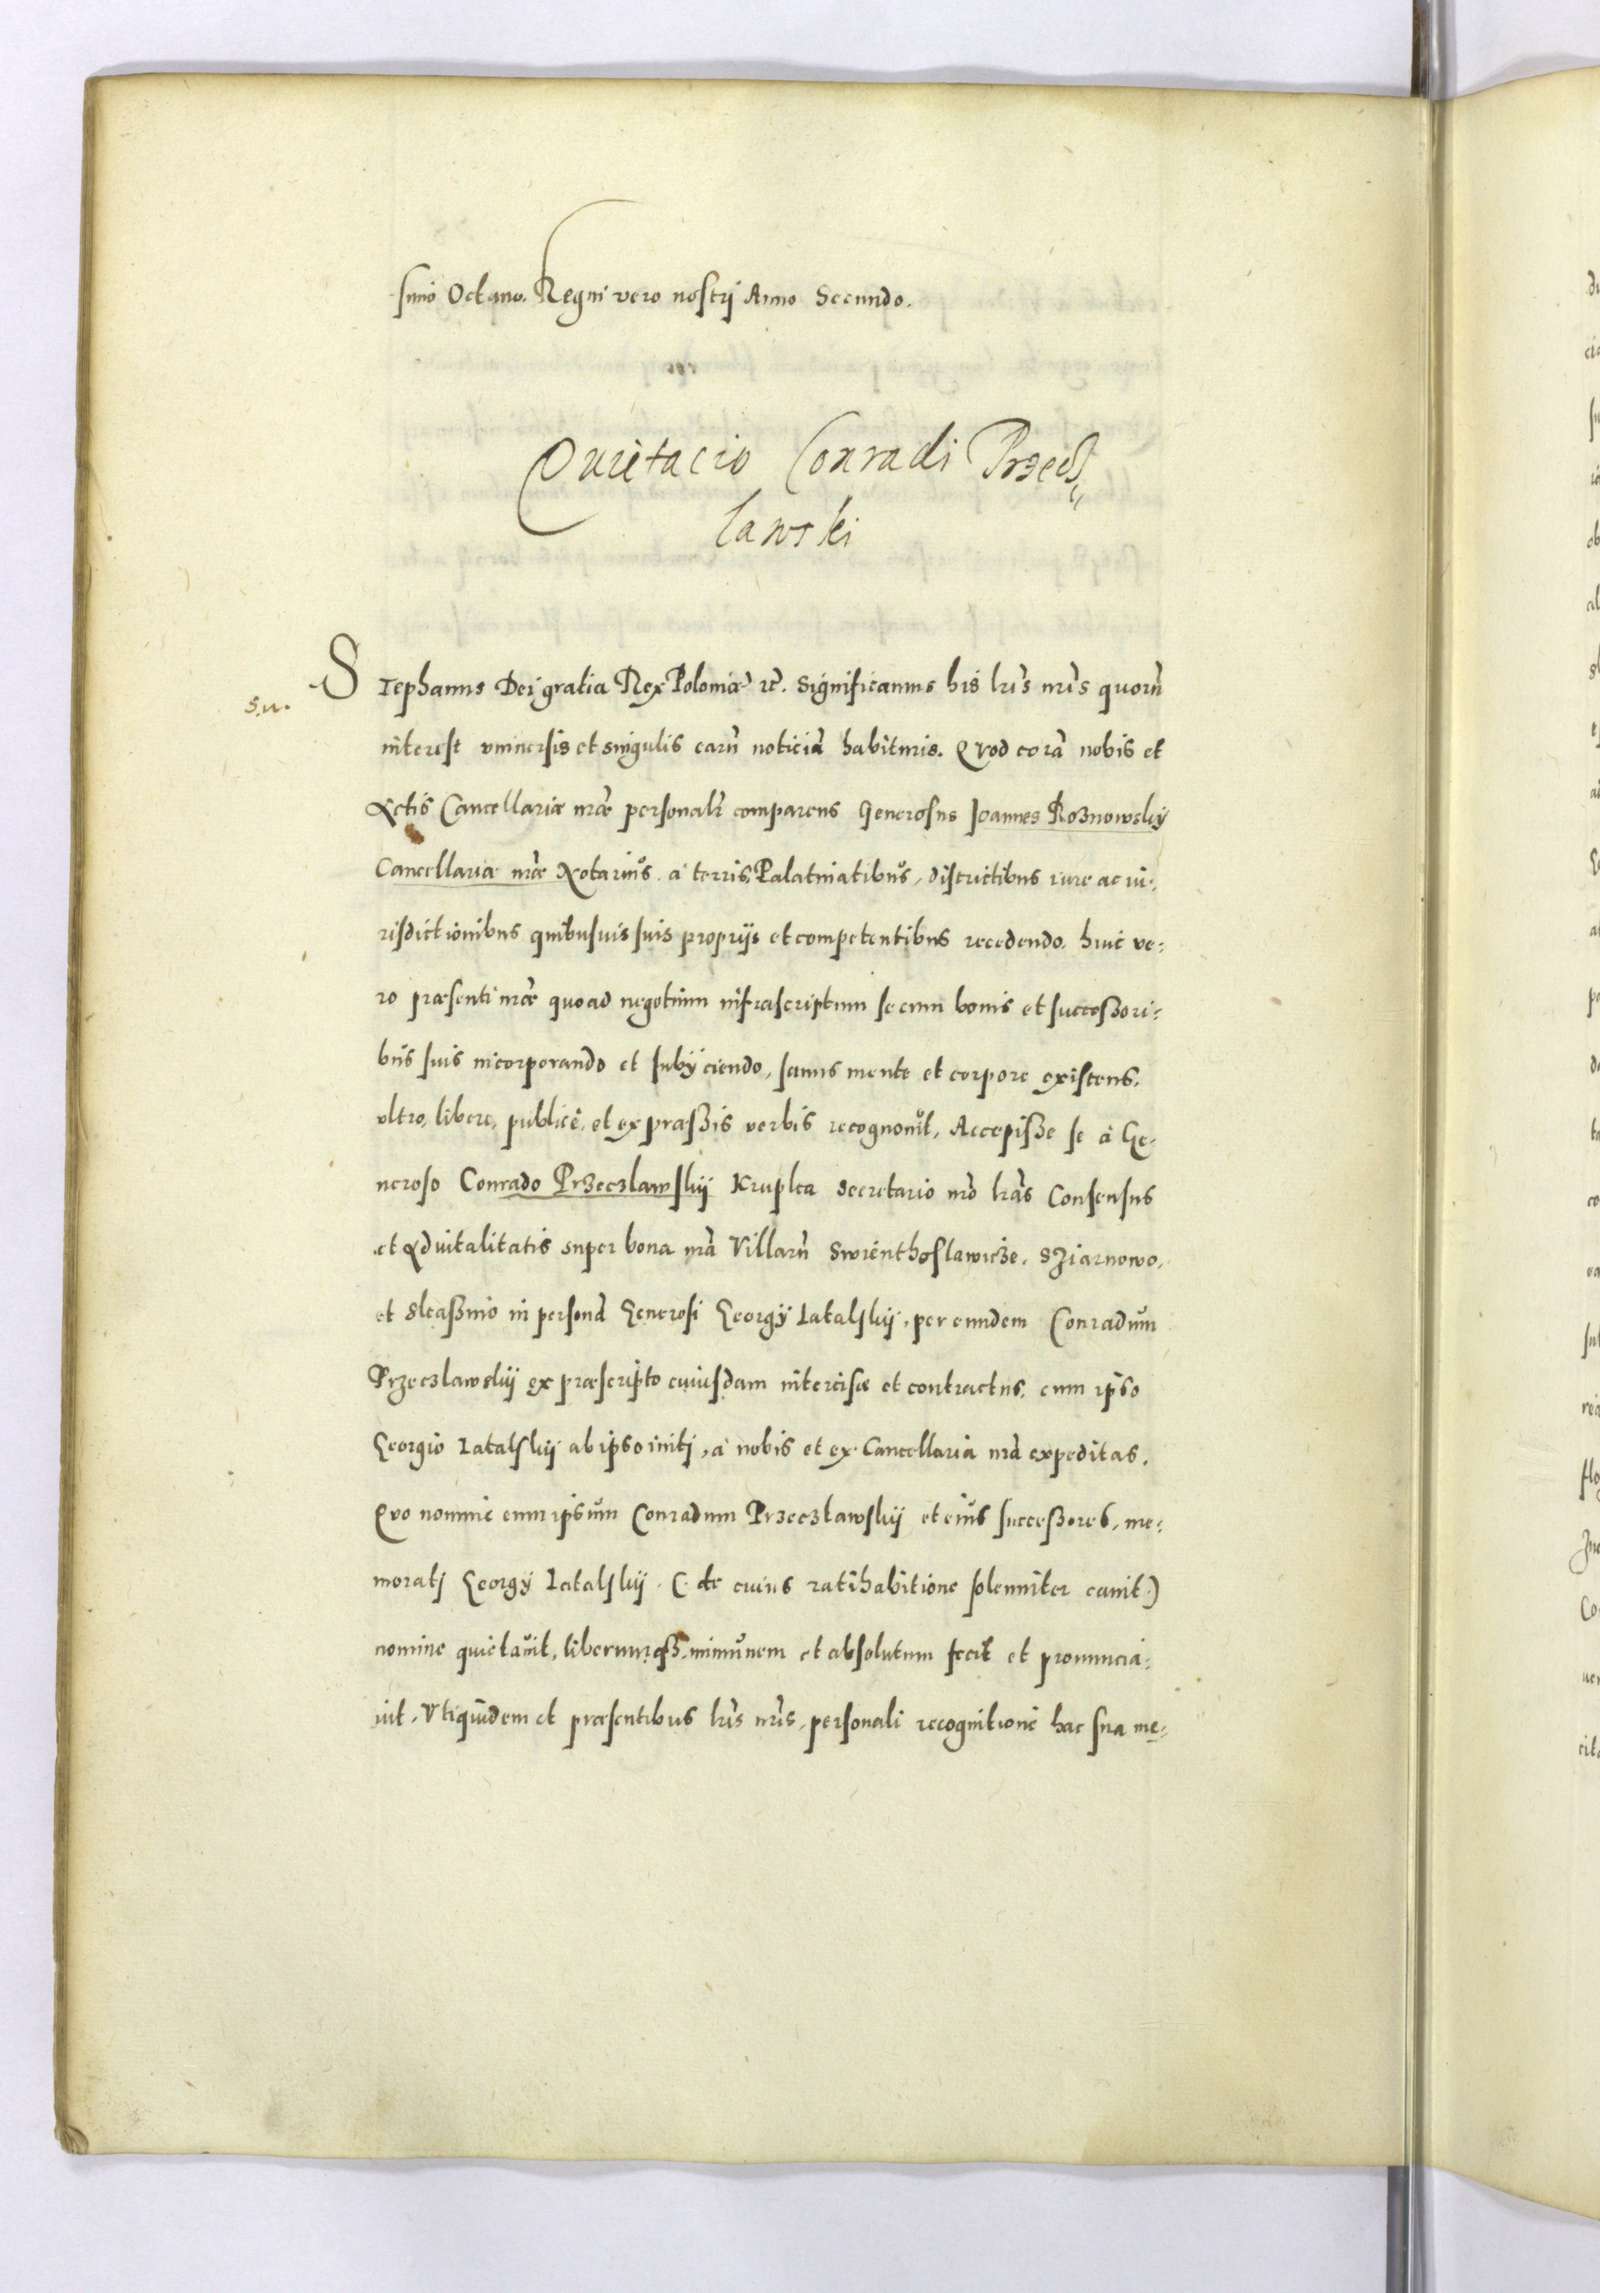 simo Octauo. Regni vero nostrj Anno Secundo.
Quietacio Conradi Przecz„
lawski
S.n.
Stephanus Dei gratia Rex Poloniæ etc. Significamus his lr̃is nr̃is quorũ
interest vniuersis et singulis earũ noticiã habituris. Quod corã nobis et
Actis Cancellariæ nr̃æ personalr̃ comparens Generosus Joannes Roznowsky
Cancellariæ nr̃æ Notarius. à terris, Palatinatibus, districtibus iure ac iu:
risdictionibus quibusuis suis proprijs et competentibus recedendo. huic ve:
ro præsenti nr̃æ quoad negotium infrascriptum se cum bonis et successori:
bus suis incorporando et subÿciendo, sanus mente et corpore existens,
vltro, libere, publicè, et expræssis verbis recognouit, Accepisse se à Ge:
neroso Conrado Przeczlawskij Krupka Secretario nr̃o lr̃as Consensus
et Aduitalitatis super bona nr̃a Villarũ Swienthoslawicze, Sziarnowo,
et Sleassino in personã Generosi Georgÿ Latalskij, per eundem Conradum
Przeczlawskij ex præscripto cuiusdam intercisæ et contractus, cum ipso
Georgio Latalskij ab ipso initj, à nobis et ex Cancellaria nr̃a expeditas.
Quo nomine eum ipsum Conradum Przeczlawskij et eius successores, me:
moratj Georgÿ Latalskij (de cuius ratihabitione solenniter cauit)
nomine quietauit, liberumqз, immunem et absolutum fecit et pronuncia:
uit, Vtiquidem et præsentibus lr̃is nr̃is, personali recognitione hac sua me: